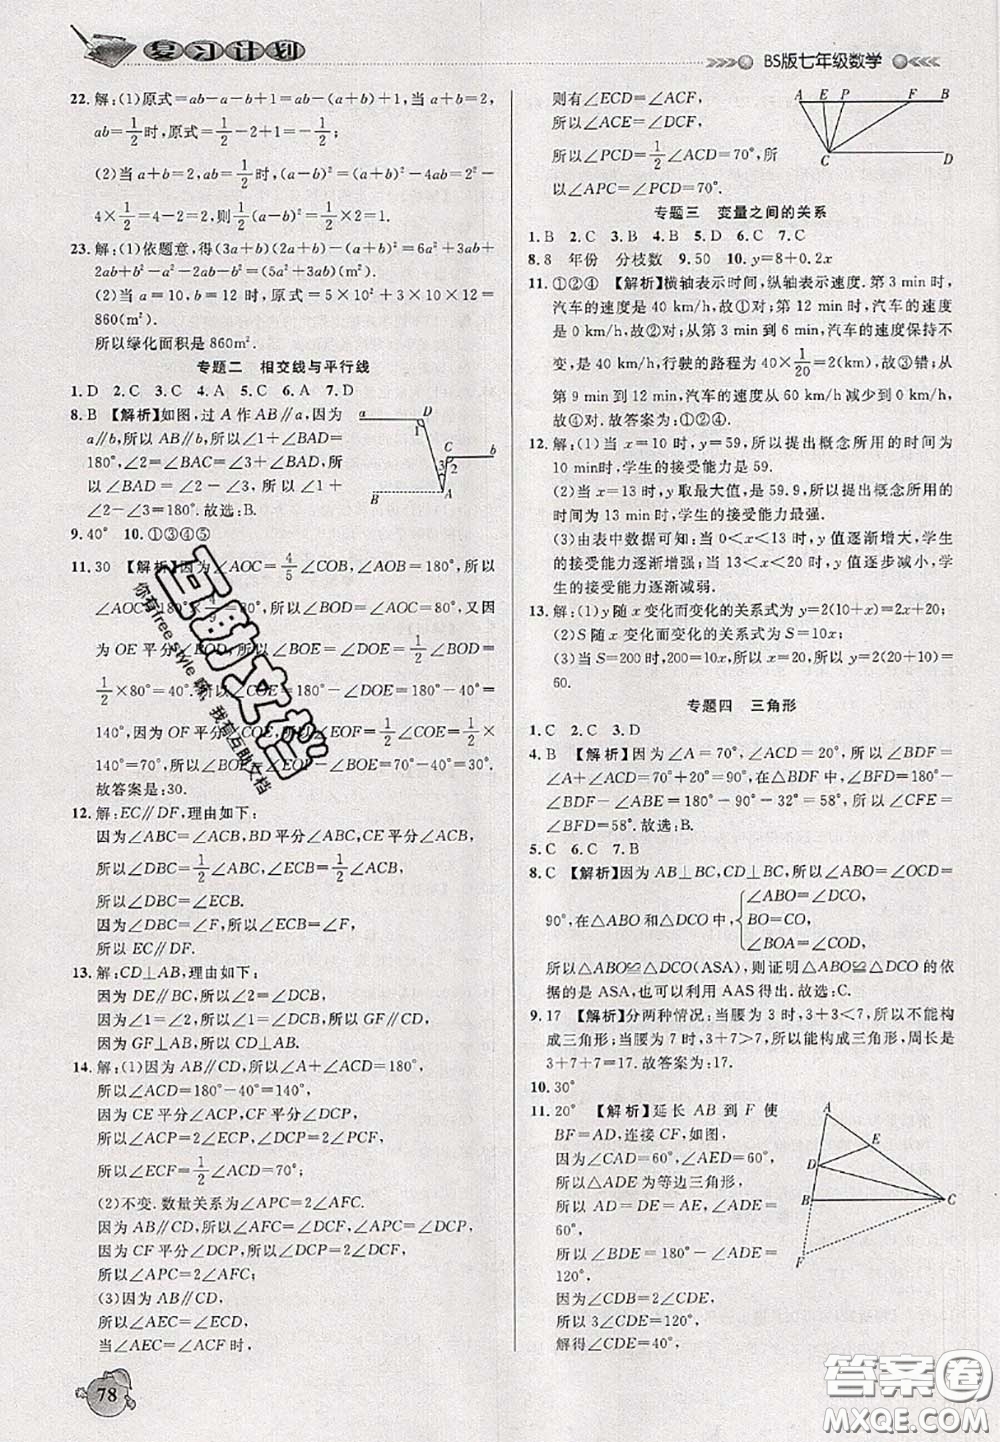 复习计划
BS版七年级数学
22.解:(1)原式=ab-a-b+1=ab-(a+b)+1,当a+b=2,
ab=1/2时,原式=1/2-2+1=-1/2;
(2)当a+b=2,ab=1/2时,(a-b)²=(a+b)²-4ab=2²-
4×1/2=4-2=2,则1/2(a-b)²=1/2×2=1.
23.解:(1)依题意,得(3a+b)(2a+b)-(a+b)²=6a²+3ab+
2ab+b²-a²-2ab-b²=(5a²+3ab)(m²).
(2)当a=10,b=12时,原式=5×10²+3×10×12=
860(m²).
所以绿化面积是860m².
专题二 相交线与平行线
1.D 2.C 3.C 4.A 5.C 6.A 7.D
8.B 【解析】如图,过A作AB∥a,因为
a∥b,所以AB∥b,所以∠1+∠BAD=
180°,∠2=∠BAC=∠3+∠BAD,所
以∠BAD=∠2-∠3,所以∠1+
∠2-∠3=180°.故选:B.
a D 1 C b 3 2 B A
9.40° 10.①③④⑤
11.30 【解析】因为∠AOC=4/5∠COB,∠AOB=180°,所以
∠AOC=180°×4/9=80°,所以∠BOD=∠AOC=80°,又因
为OE平分∠BOD,所以∠BOE=∠DOE=1/2∠BOD=
1/2×80°=40°.所以∠COE=180°-∠DOE=180°-40°=
140°,因为OF平分∠COE,所以∠EOF=1/2∠COE=1/2×
140°=70°,所以∠BOF=∠EOF-∠BOE=70°-40°=30°.
故答案是:30.
12.解:EC∥DF,理由如下:
因为∠ABC=∠ACB,BD平分∠ABC,CE平分∠ACB,
所以∠DBC=1/2∠ABC,∠ECB=1/2∠ACB,
所以∠DBC=∠ECB.
因为∠DBC=∠F,所以∠ECB=∠F,
所以EC∥DF.
13.解:CD⊥AB,理由如下:
因为DE∥BC,所以∠2=∠DCB,
因为∠1=∠2,所以∠1=∠DCB,所以GF∥CD,
因为GF⊥AB,所以CD⊥AB.
14.解:(1)因为AB∥CD,所以∠A+∠ACD=180°,
所以∠ACD=180°-40°=140°,
因为CE平分∠ACP,CF平分∠DCP,
所以∠ACP=2∠ECP,∠DCP=2∠PCF,
所以∠ECF=1/2∠ACD=70°;
(2)不变.数量关系为∠APC=2∠AFC.
因为AB∥CD,所以∠AFC=∠DCF,∠APC=∠DCP,
因为CF平分∠DCP,所以∠DCP=2∠DCF,
所以∠APC=2∠AFC,
(3)因为AB∥CD,
所以∠AEC=∠ECD,
当∠AEC=∠ACF时,
78
则有∠ECD=∠ACF,
所以∠ACE=∠DCF,
所以∠PCD=1/2∠ACD=70°,所
以∠APC=∠PCD=70°.
A E P F B C D
专题三 变量之间的关系
1.B 2.C 3.C 4.B 5.D 6.C 7.C
8.8 年份 分枝数 9.50 10.y=8+0.2x
11.①②④ 【解析】横轴表示时间,纵轴表示速度.第3 min时,
汽车的速度是40 km/h,故①对;第12 min时,汽车的速度
是0 km/h,故②对;从第3 min到6 min,汽车的速度保持不
变,是40 km/h,行驶的路程为40×1/20=2(km),故③错;从
第9 min到第12 min,汽车的速度从60 km/h减少到
0 km/h,故④对.故答案为:①②④.
12.解:(1)当x=10时,y=59,所以提出概念所用的时间为
10 min时,学生的接受能力是59.
(2)当x=13时,y取最大值,是59.9,所以提出概念所用的
时间为13 min时,学生的接受能力最强.
(3)由表中数据可知:当0<x<13时,y值逐渐增大,学生
的接受能力逐渐增强;当13<x<20时,y值逐步减小,学
生的接受能力逐渐减弱.
13.解:(1)y随x变化而变化的关系式为y=2(10+x)=2x+20;
(2)S随x变化而变化的关系式为S=10x;
(3)当S=200时,200=10x,所以x=20,所以y=2×20+20=
60.
专题四 三角形
1.C 2.C 3.D
4.B 【解析】因为∠A=70°,∠ACD=20°,所以∠BDF=
∠A+∠ACD=70°+20°=90°,在△BDF中,∠BFD=180°-
∠BDF-∠ABE=180°-90°-32°=58°,所以∠CFE=
∠BFD=58°.故选:B.
5.C 6.C 7.B
8.C 【解析】因为AB⊥BC,CD⊥BC,所以∠ABO=∠OCD=
90°,在△ABO和△DCO中,{∠ABO=∠DCO,
BO=CO,
∠BOA=∠COD,
所以△ABO≌△DCO(ASA),则证明△ABO≌△DCO的依
据的是ASA,也可以利用AAS得出.故选:C.
9.17 【解析】分两种情况:当腰为3时,3+3<7,所以不能构
成三角形;当腰为7时,3+7>7,所以能构成三角形,周长是
3+7+7=17.故答案为:17.
10.30°
11.20° 【解析】延长AB到F使
BF=AD,连接CF,如图,
因为∠CAD=60°,∠AED=60°,
所以△ADE为等边三角形,
所以AD=DE=AE,∠ADE=
60°,
所以∠BDE=180°-∠ADE=
120°,
因为∠CDB=2∠CDE,
所以3∠CDE=120°,
解得∠CDE=40°,
A E D B C F
互助文档
你有free style嘛,我有互助文档
答案圈
MXQE.COM